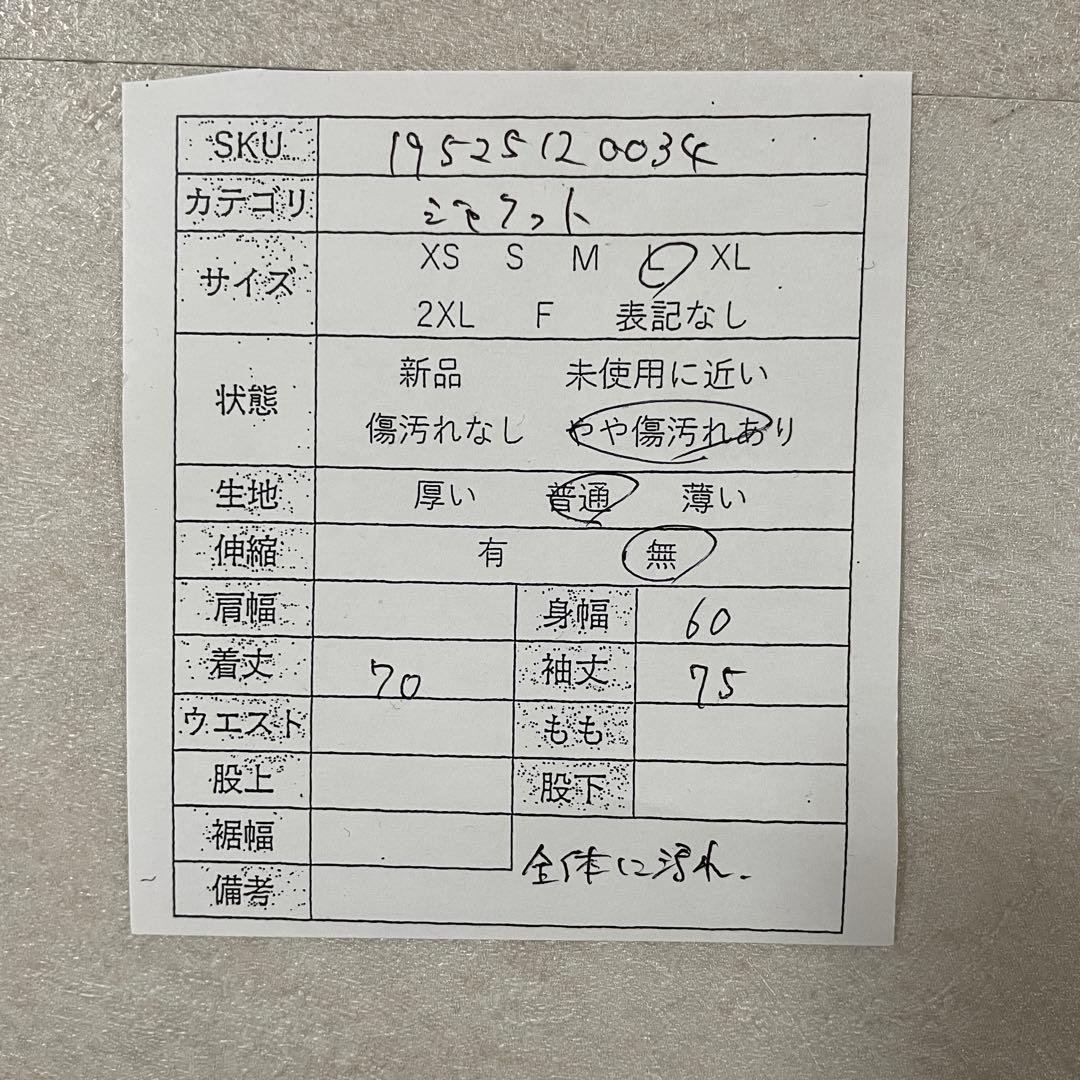 SKU 19525120034
カテゴリ ジャケット
サイズ XS S M L XL
2XL F 表記なし
状態 新品 未使用に近い
傷汚れなし やや傷汚れあり
生地 厚い 普通 薄い
伸縮 有 無
肩幅 身幅 60
着丈 70 袖丈 75
ウエスト もも
股上 股下
裾幅
備考 全体に汚れ.